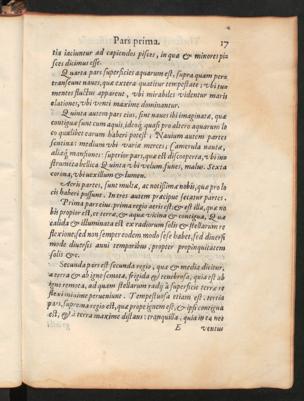 Pars prima. 17
tia iaciuntur ad capiendos pisces, in qua & minores pi
sces dicimus esse.
Quarta pars superficies aquarum est, supra quam pera
transeunt naues, quæ extera quatitur tempestate; vbi tu
mentes fluctus apparent, vbi mirabiles videntur maris
elationes, vbi venti maxime dominantur.
Quinta autem pars eius, siue naues ibi imaginatæ, quæ
contiguæ sunt cum aquis, ideoq; quasi pro altero aquarum lo
co quælibet earum haberi potest; Nauium autem partes
sentina: medium vbi variæ merces; Camerula nautæ,
aliæq; mansiones: superior pars, quæ est discoperta, vbi in
strumēta bellica. Quinta vbi velum funes, malus. Sexta
corona, vbi vexillum & lumen.
Aeris partes, sunt multæ, ac notissimæ nobis, quæ pro lo
cis haberi possunt. Interes autem præcipue secatur partes.
Prima pars eius, prima regio aeris est, & est illa, quæ no
bis propior est, et terræ, & aquæ vicina & contigua. Quæ
calida & illuminata est ex radiorum solis & stellarum re
flexione, sed non semper eodem modo sese habet, sed diuerso
mode diuersis anni temporibus; propter propinquitatem
solis &c.
Secunda pars est secunda regio, quæ & media dicitur,
a terra & ab igne semota, frigida & tenebrosa; quia est ab
igne remota, ad quam stellarum radij à superficie terræ re
flexi minime perueniunt. Tempestuosa etiam est. tertia
pars, suprema regio est, quæ prope ignem est, & ipsi contigua
est, & à terra maxime distans: tranquilla; quia in ea non
E ventus